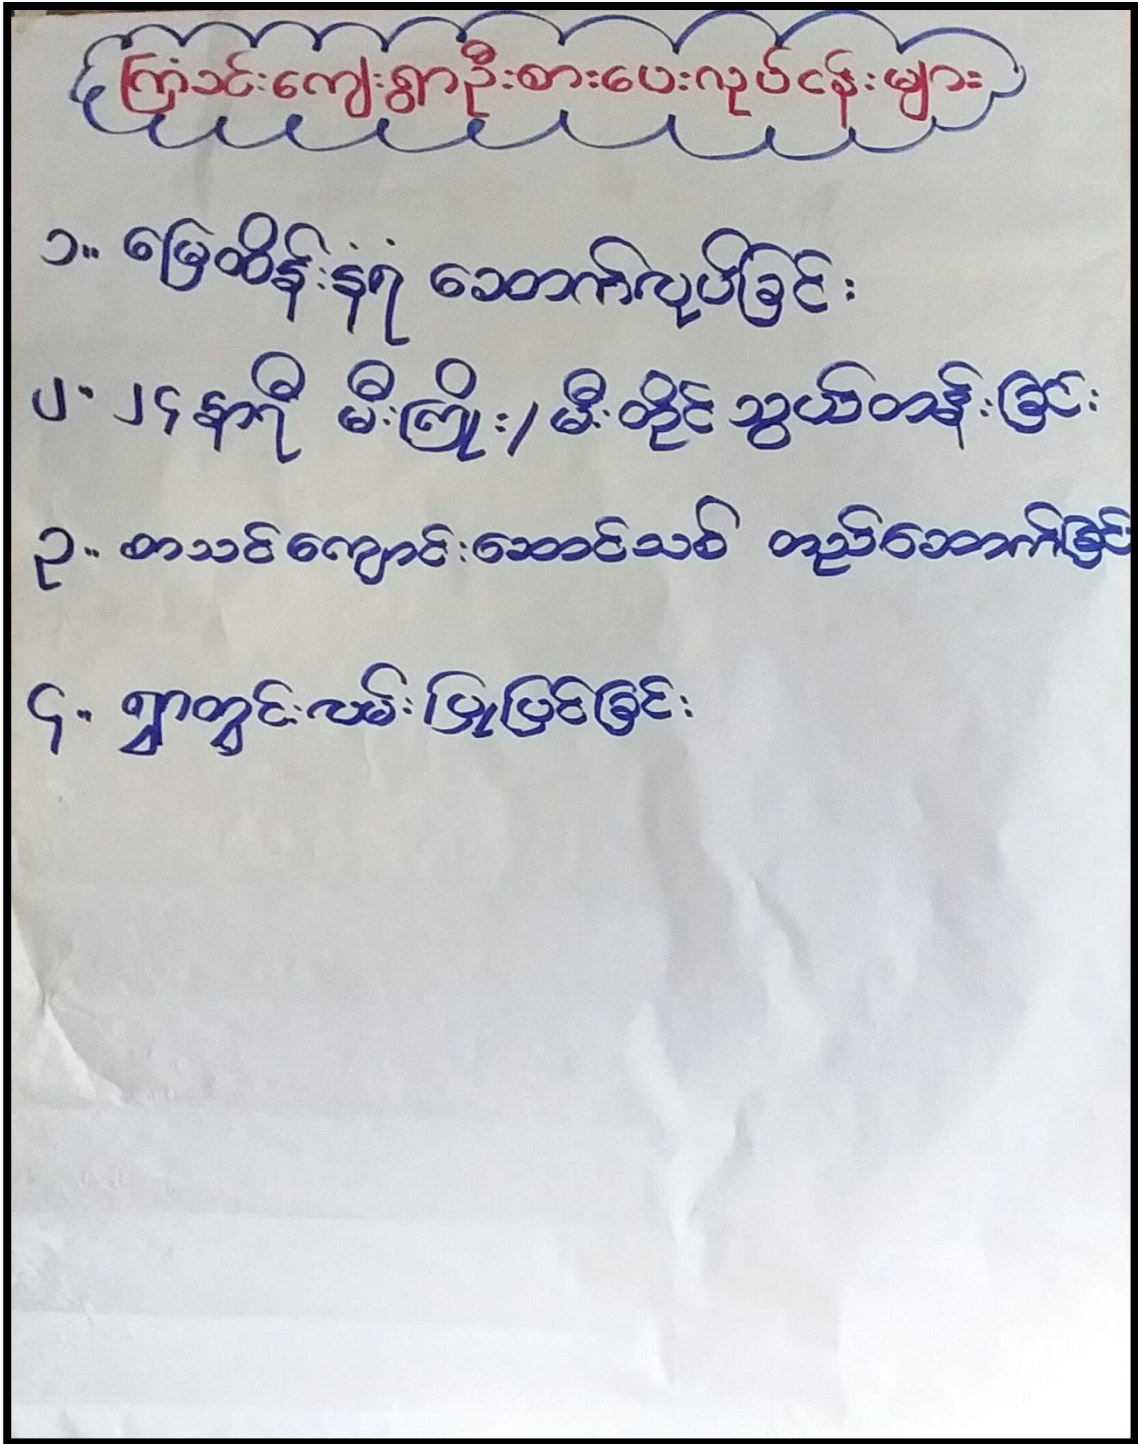 ကြံခင်းကျေးရွာဦးစားပေးလုပ်ငန်းများ
၁။ မြေထိန်းနံရံ ဆောက်လုပ်ခြင်း
၂။ ၂၄နာရီ မီးကြိုး/မီးတိုင်သွယ်တန်းခြင်း
၃။ စာသင်ကျောင်းဆောင်သစ် တည်ဆောက်ခြင်း
၄။ ရွာတွင်းလမ်းပြုပြင်ခြင်း